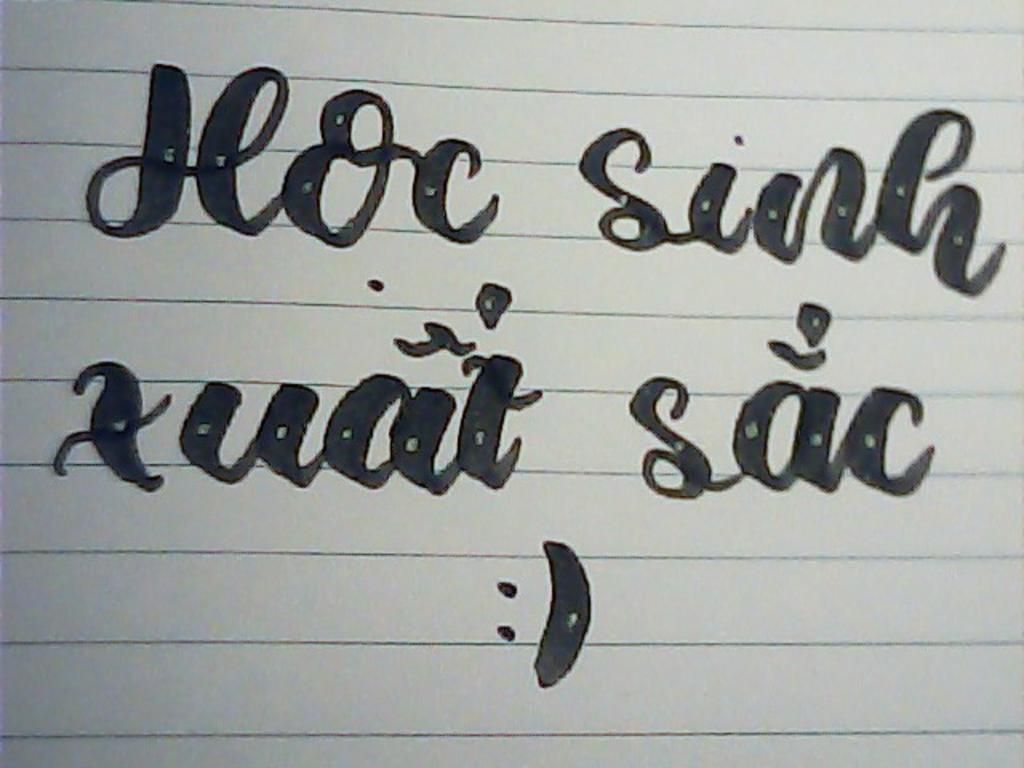 Học sinh
xuất sắc
:)